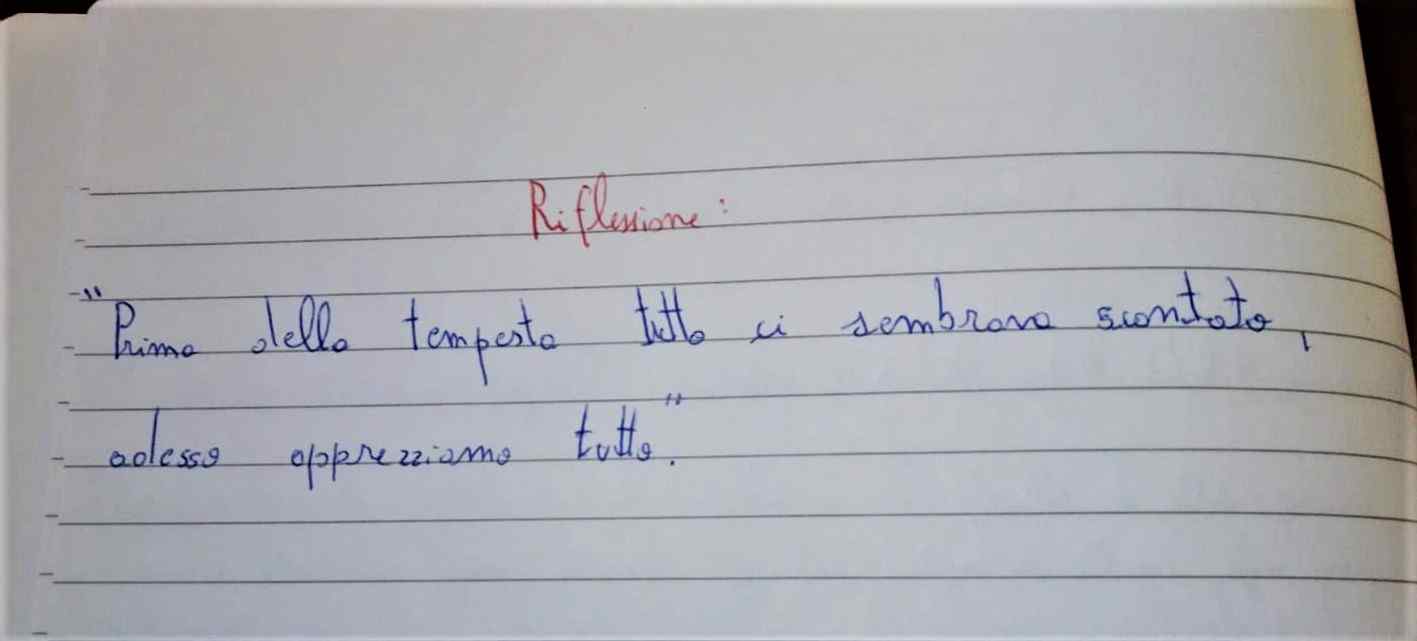 Riflessione:
"Prima della tempesta tutto ci sembrava scontato,
adesso apprezziamo tutto".